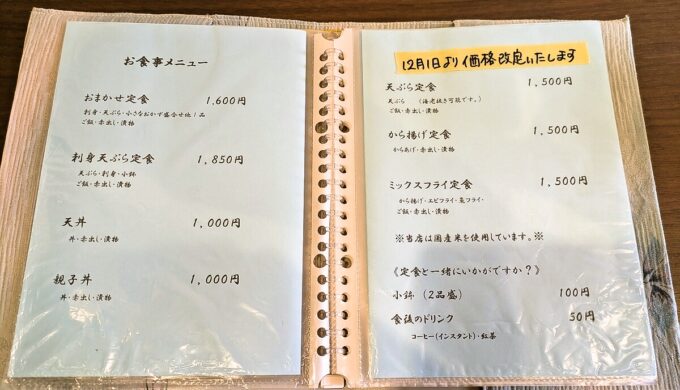 お食事メニュー
おまかせ定食 1,600円
刺身・天ぷら・小さなおかず盛合せ他1品
ご飯・赤出し・漬物
刺身天ぷら定食 1,850円
天ぷら・刺身・小鉢
ご飯・赤出し・漬物
天丼 1,000円
丼・赤出し・漬物
親子丼 1,000円
丼・赤出し・漬物
12月1日より価格改定いたします
天ぷら定食 1,500円
天ぷら (海老抜き可能です。)
ご飯・赤出し・漬物
から揚げ定食 1,500円
からあげ・赤出し・漬物
ミックスフライ定食 1,500円
から揚げ・エビフライ・魚フライ・
ご飯・赤出し・漬物
※当店は国産米を使用しています。※
《定食と一緒にいかがですか?》
小鉢 (2品盛) 100円
食後のドリンク 50円
コーヒー(インスタント)・紅茶